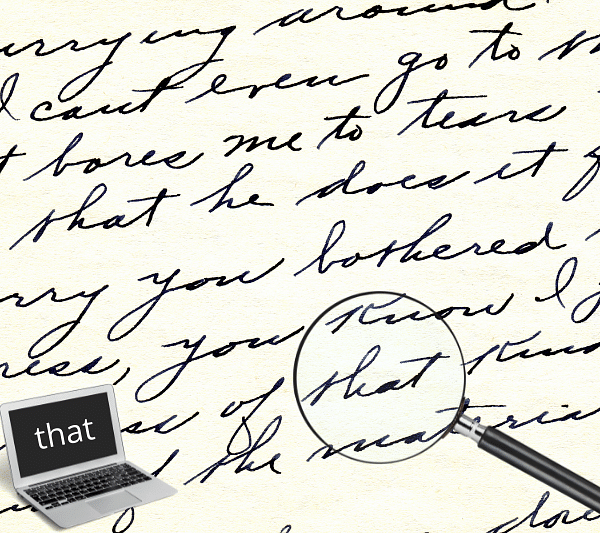 urrying around
I can't even go to
bores me to tears
that he does it
rry you bothered
ress, you know I
of that kind
that
the materia